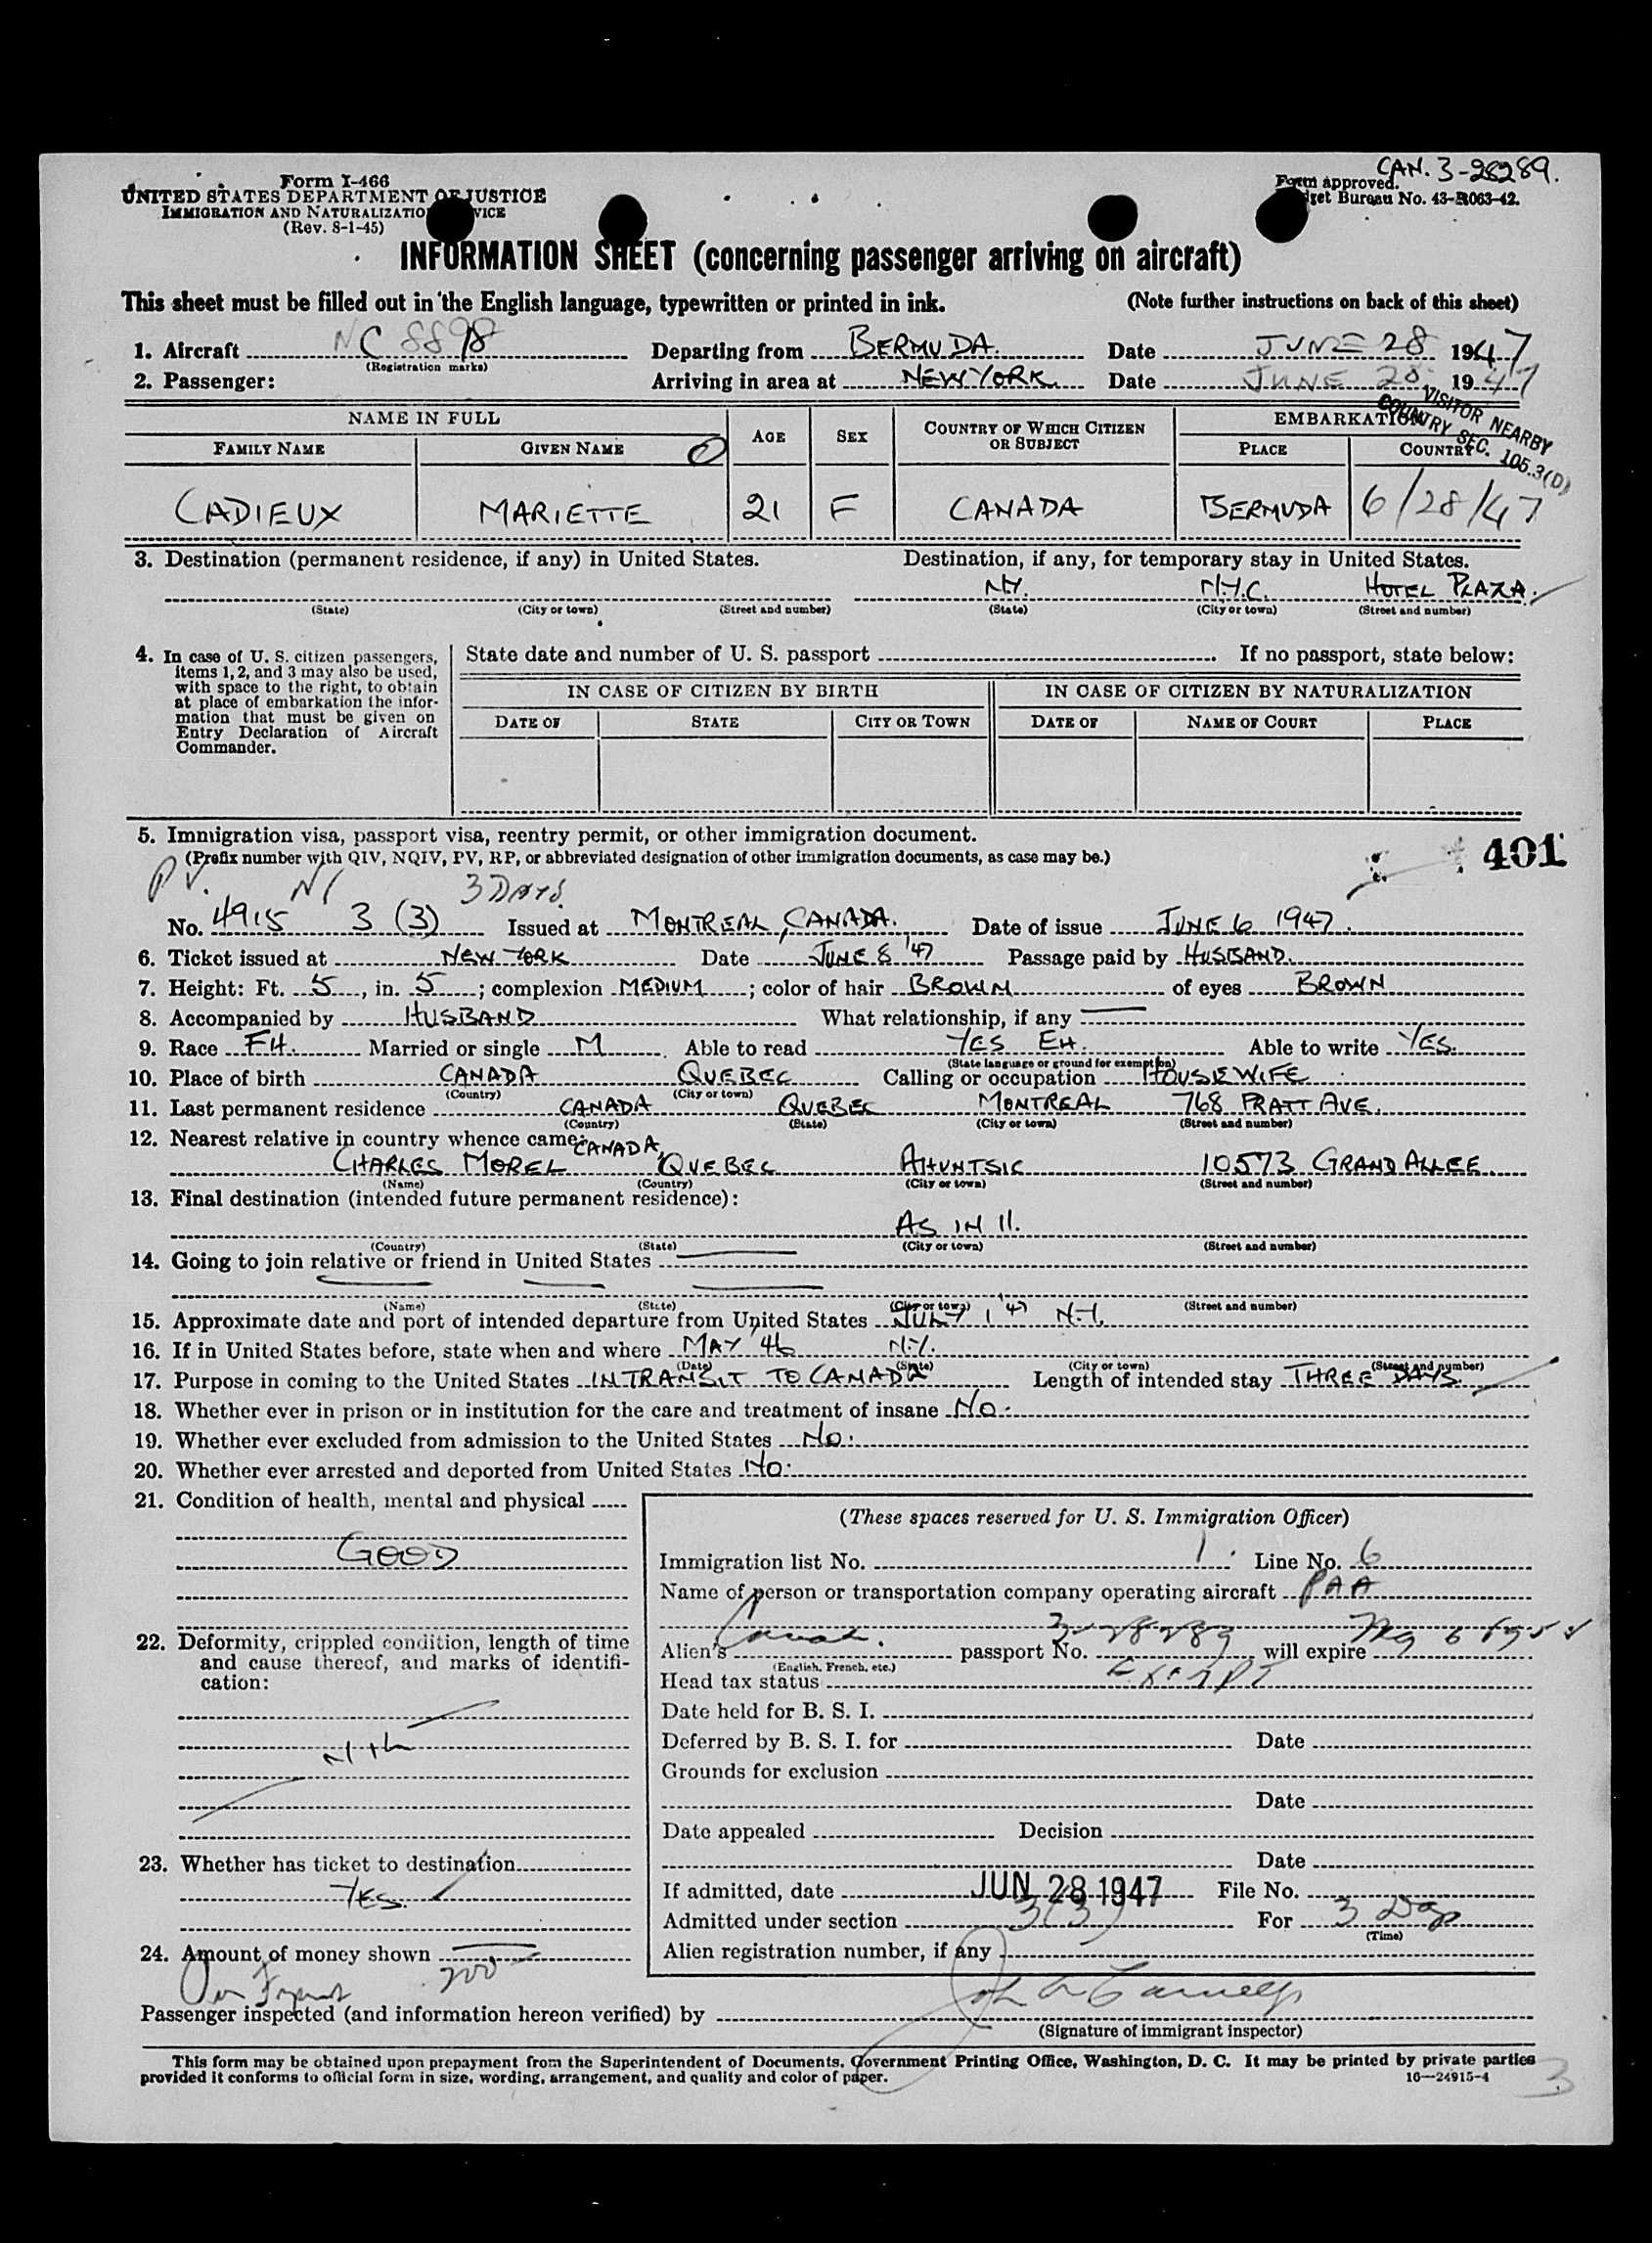 CAN. 3-28289.
Form I-466
UNITED STATES DEPARTMENT OF JUSTICE
IMMIGRATION AND NATURALIZATIO VICE
(Rev. 8-1-45)
Form approved.
get Bureau No. 43-R063-42.
INFORMATION SHEET (concerning passenger arriving on aircraft)
This sheet must be filled out in the English language, typewritten or printed in ink. (Note further instructions on back of this sheet)
1. Aircraft NC 8898 Departing from BERMUDA. Date JUNE 28 1947
(Registration marks)
2. Passenger: Arriving in area at NEW YORK. Date JUNE 28, 1947
VISITOR NEARBY
COUNTRY SEC. 105.3(D)
NAME IN FULL AGE SEX COUNTRY OF WHICH CITIZEN OR SUBJECT EMBARKATION
FAMILY NAME GIVEN NAME PLACE COUNTRY
CADIEUX MARIETTE 21 F CANADA BERMUDA 6/28/47
3. Destination (permanent residence, if any) in United States. Destination, if any, for temporary stay in United States.
N.Y. N.Y.C. HOTEL PLAZA.
(State) (City or town) (Street and number) (State) (City or town) (Street and number)
4. In case of U. S. citizen passengers, items 1, 2, and 3 may also be used, with space to the right, to obtain at place of embarkation the information that must be given on Entry Declaration of Aircraft Commander.
State date and number of U. S. passport . If no passport, state below:
IN CASE OF CITIZEN BY BIRTH IN CASE OF CITIZEN BY NATURALIZATION
DATE OF STATE CITY OR TOWN DATE OF NAME OF COURT PLACE
5. Immigration visa, passport visa, reentry permit, or other immigration document.
(Prefix number with QIV, NQIV, PV, RP, or abbreviated designation of other immigration documents, as case may be.)
401
PV. 3 DAYS.
No. 4915 3 (3) Issued at MONTREAL, CANADA. Date of issue JUNE 6 1947.
6. Ticket issued at NEW YORK Date JUNE 8 '47 Passage paid by HUSBAND.
7. Height: Ft. 5, in. 5; complexion MEDIUM; color of hair BROWN of eyes BROWN
8. Accompanied by HUSBAND What relationship, if any
9. Race FH. Married or single M. Able to read YES EH. Able to write YES.
(State language or ground for exemption)
10. Place of birth CANADA QUEBEC Calling or occupation HOUSEWIFE
(Country) (City or town)
11. Last permanent residence CANADA QUEBEC MONTREAL 768 PRATT AVE.
(Country) (State) (City or town) (Street and number)
12. Nearest relative in country whence came:
CHARLES MOREL CANADA, QUEBEC AHUNTSIC 10573 GRAND ALLEE.
(Name) (Country) (City or town) (Street and number)
13. Final destination (intended future permanent residence):
AS IN 11.
(Country) (State) (City or town) (Street and number)
14. Going to join relative or friend in United States
(Name) (State) (City or town) (Street and number)
15. Approximate date and port of intended departure from United States JULY 1 '47 N.Y.
16. If in United States before, state when and where MAY '46 N.Y.
(Date) (State) (City or town) (Street and number)
17. Purpose in coming to the United States IN TRANSIT TO CANADA Length of intended stay THREE DAYS.
18. Whether ever in prison or in institution for the care and treatment of insane NO.
19. Whether ever excluded from admission to the United States NO.
20. Whether ever arrested and deported from United States NO.
21. Condition of health, mental and physical
GOOD
22. Deformity, crippled condition, length of time and cause thereof, and marks of identification:
23. Whether has ticket to destination
YES.
24. Amount of money shown 200
(These spaces reserved for U. S. Immigration Officer)
Immigration list No. 1. Line No. 6
Name of person or transportation company operating aircraft PAA
Alien's passport No. 3-28289 will expire
(English, French, etc.)
Head tax status EXEMPT
Date held for B. S. I.
Deferred by B. S. I. for Date
Grounds for exclusion
Date
Date appealed Decision
Date
If admitted, date JUN 28 1947 File No.
Admitted under section 3(3) For 3 Days
(Time)
Alien registration number, if any
Passenger inspected (and information hereon verified) by
(Signature of immigrant inspector)
This form may be obtained upon prepayment from the Superintendent of Documents, Government Printing Office, Washington, D. C. It may be printed by private parties
provided it conforms to official form in size, wording, arrangement, and quality and color of paper. 16—24915-4
3